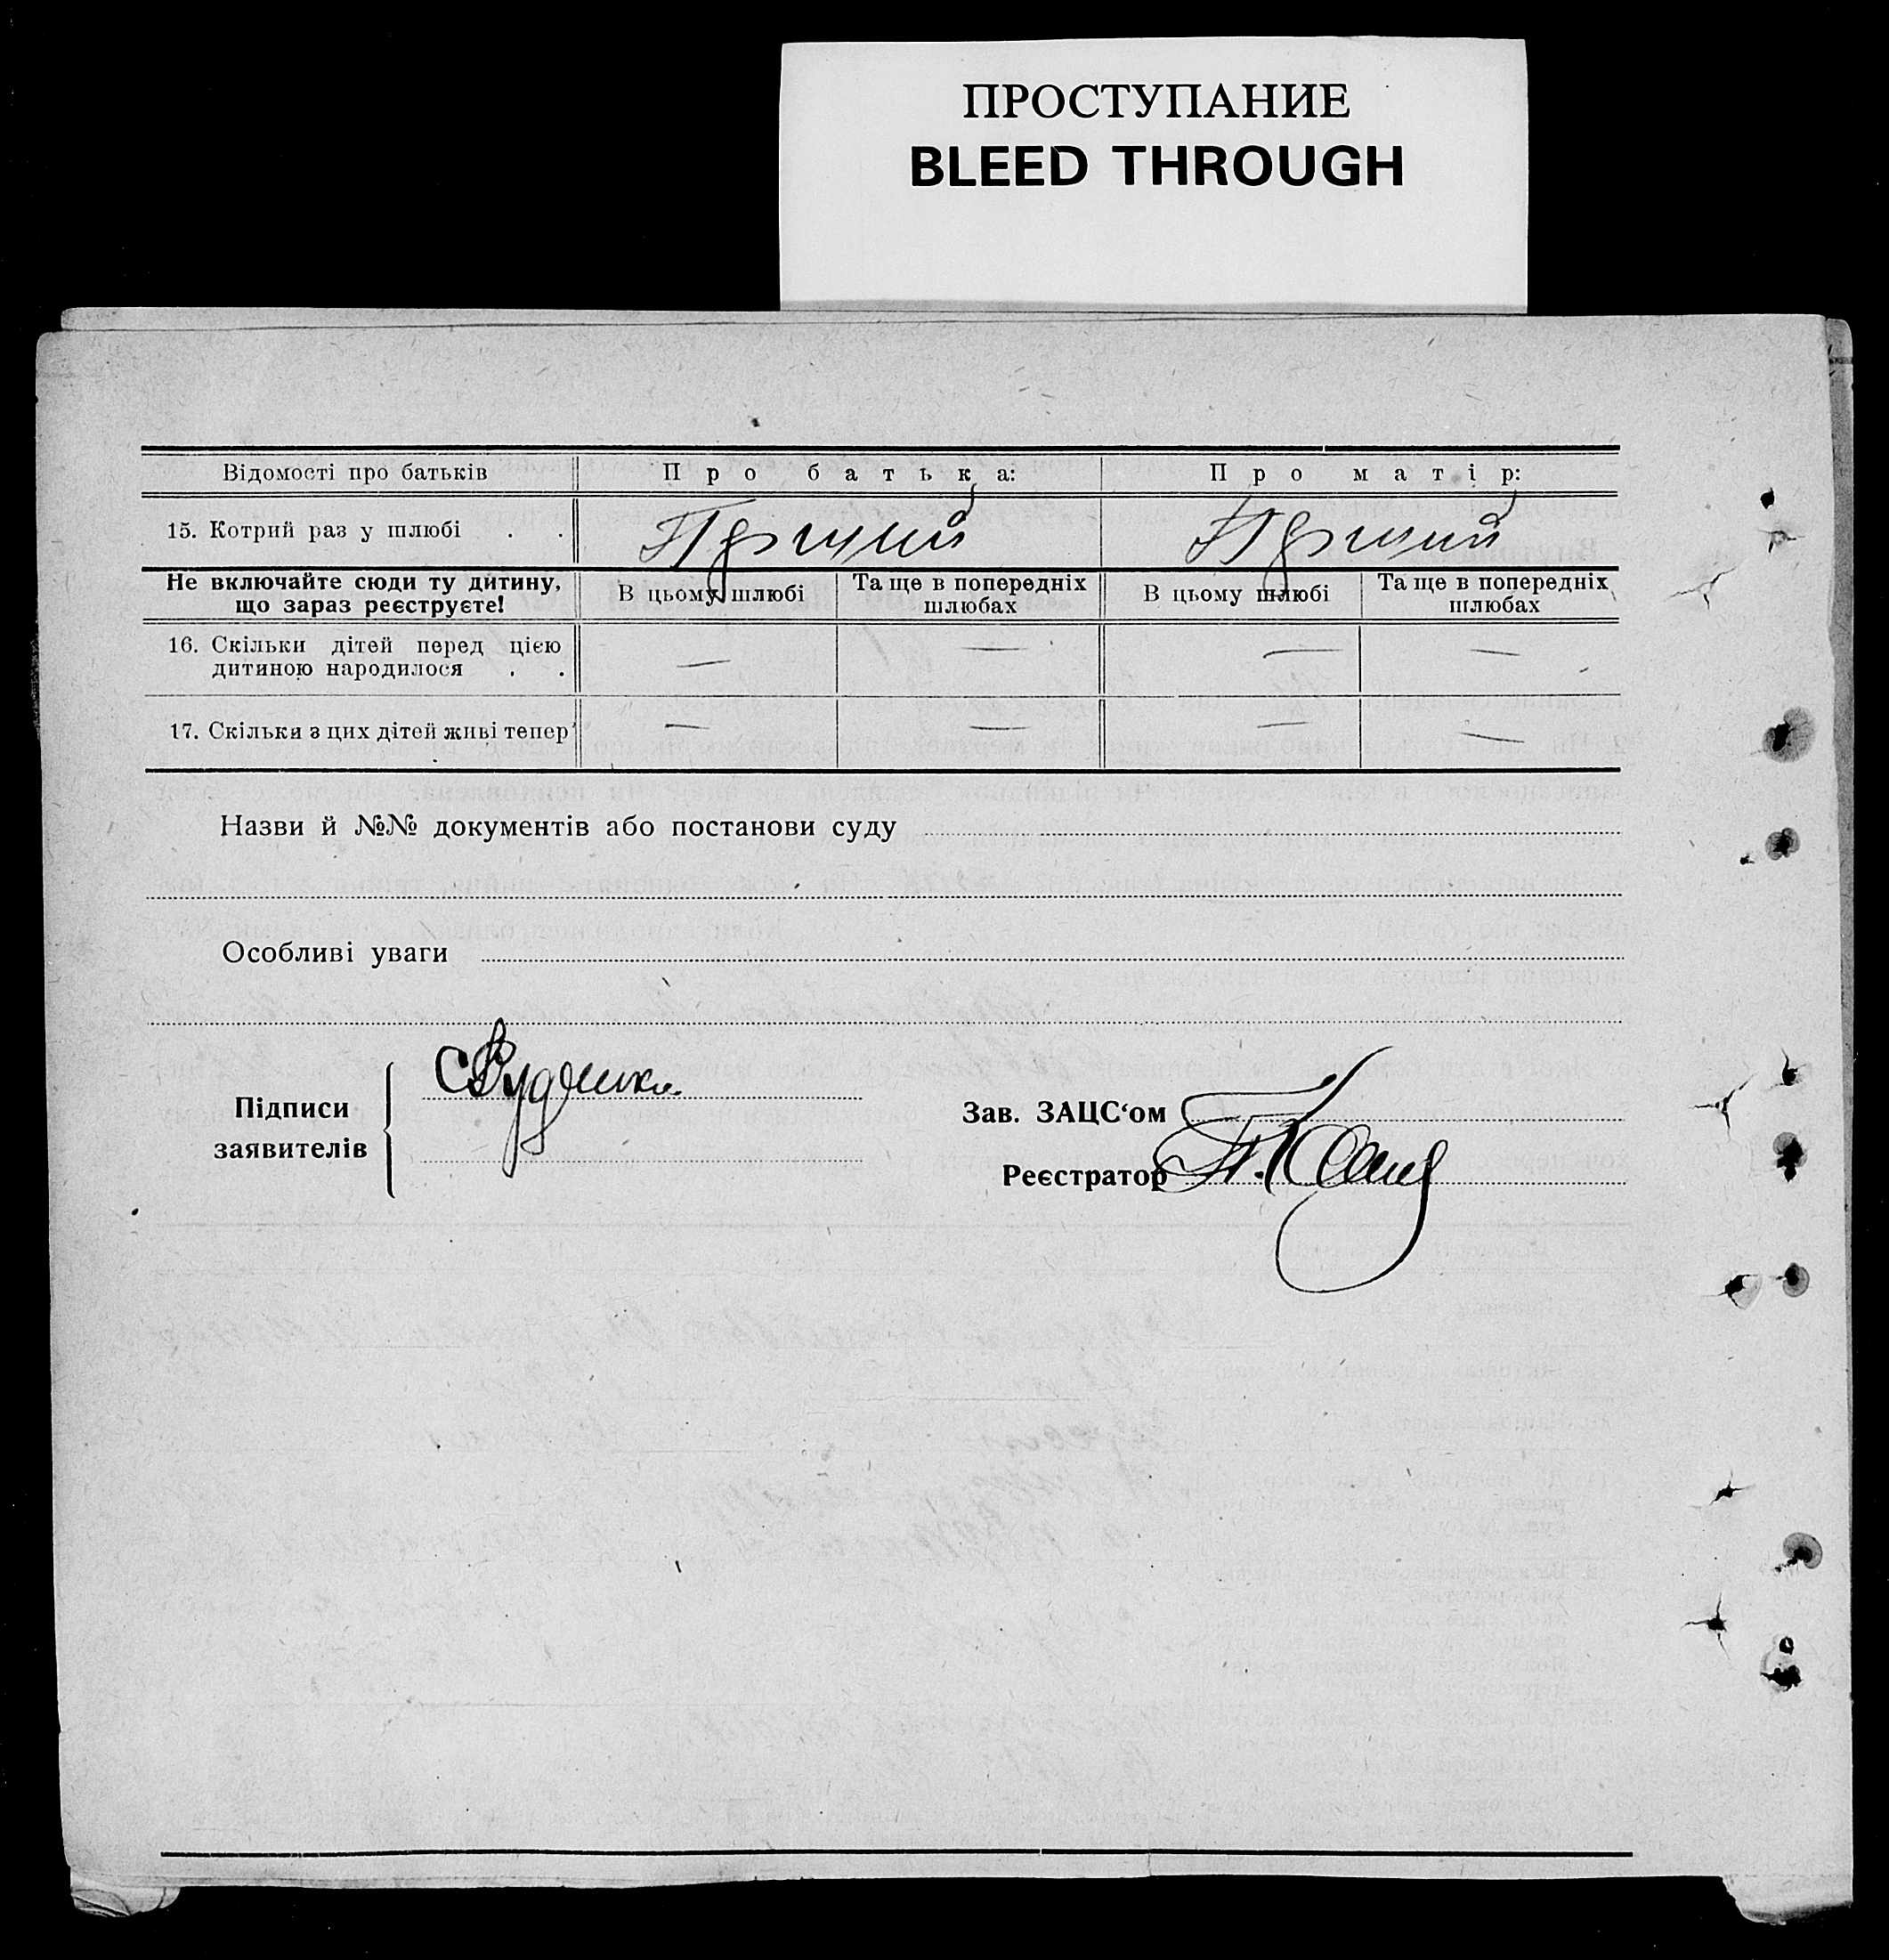 ПРОСТУПАНИЕ
BLEED THROUGH
Відомості про батьків Про батька: Про матір:
15. Котрий раз у шлюбі . . Первий Первий
Не включайте сюди ту дитину, що зараз реєструєте! В цьому шлюбі Та ще в попередніх шлюбах В цьому шлюбі Та ще в попередніх шлюбах
16. Скільки дітей перед цією
дитиною народилося . . — — — —
17. Скільки з цих дітей живі тепер — — — —
Назви й №№ документів або постанови суду
Особливі уваги
Підписи
заявителів
Зав. ЗАЦС‘ом
Реєстратор